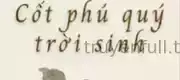 Cốt phú quý
trời sinh